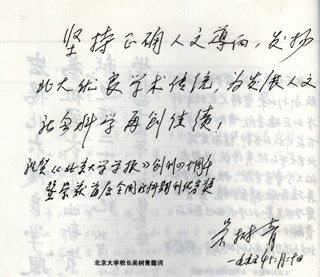 坚持正确人文导向，发扬
北大优良学术传统，为发展人文
社会科学再创佳绩，
祝贺《北京大学学报》创刊四十周年
暨荣获首届全国社科期刊优秀奖
吴树青
一九九五年六月二十日
北京大学校长吴树青题词